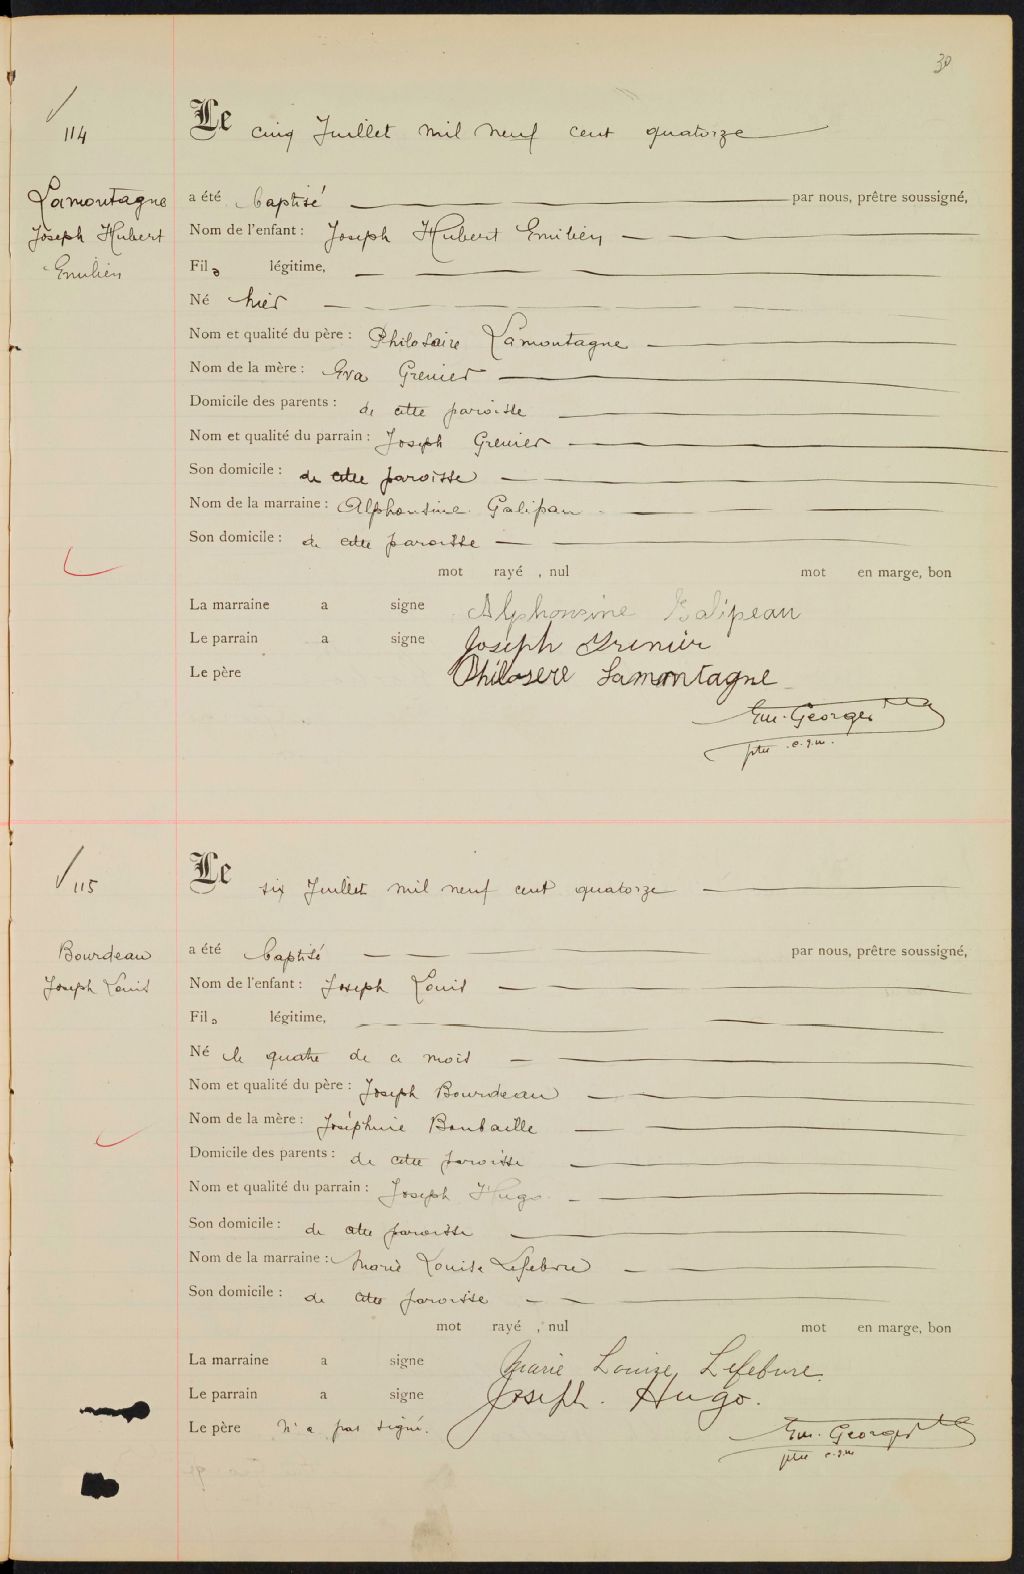 30
114
Le cinq Juillet mil neuf cent quatorze
Lamontagne
Joseph Hubert
Emilien
a été baptisé par nous, prêtre soussigné,
Nom de l'enfant : Joseph Hubert Emilien
Fils légitime,
Né hier
Nom et qualité du père : Philosaire Lamontagne
Nom de la mère : Eva Grenier
Domicile des parents : de cette paroisse
Nom et qualité du parrain : Joseph Grenier
Son domicile : de cette paroisse
Nom de la marraine : Alphonsine Galipau
Son domicile : de cette paroisse
mot rayé , nul mot en marge, bon
La marraine a signe Alphonsine Galipeau
Le parrain a signe Joseph Grenier
Le père Philosere Lamontagne
Em. Georges
ptre c.j.m.
115
Le six Juillet mil neuf cent quatorze
Bourdeau
Joseph Louis
a été baptisé par nous, prêtre soussigné,
Nom de l'enfant : Joseph Louis
Fils légitime,
Né le quatre de ce mois
Nom et qualité du père : Joseph Bourdeau
Nom de la mère : Joséphine
Domicile des parents : de cette paroisse
Nom et qualité du parrain : Joseph Hugo
Son domicile : de cette paroisse
Nom de la marraine : Marie Louise Lefebvre
Son domicile : de cette paroisse
mot rayé , nul mot en marge, bon
La marraine a signe Marie Louise Lefebvre.
Le parrain a signe Joseph. Hugo.
Le père n'a pas signé.
Em. Georges
ptre c.j.m